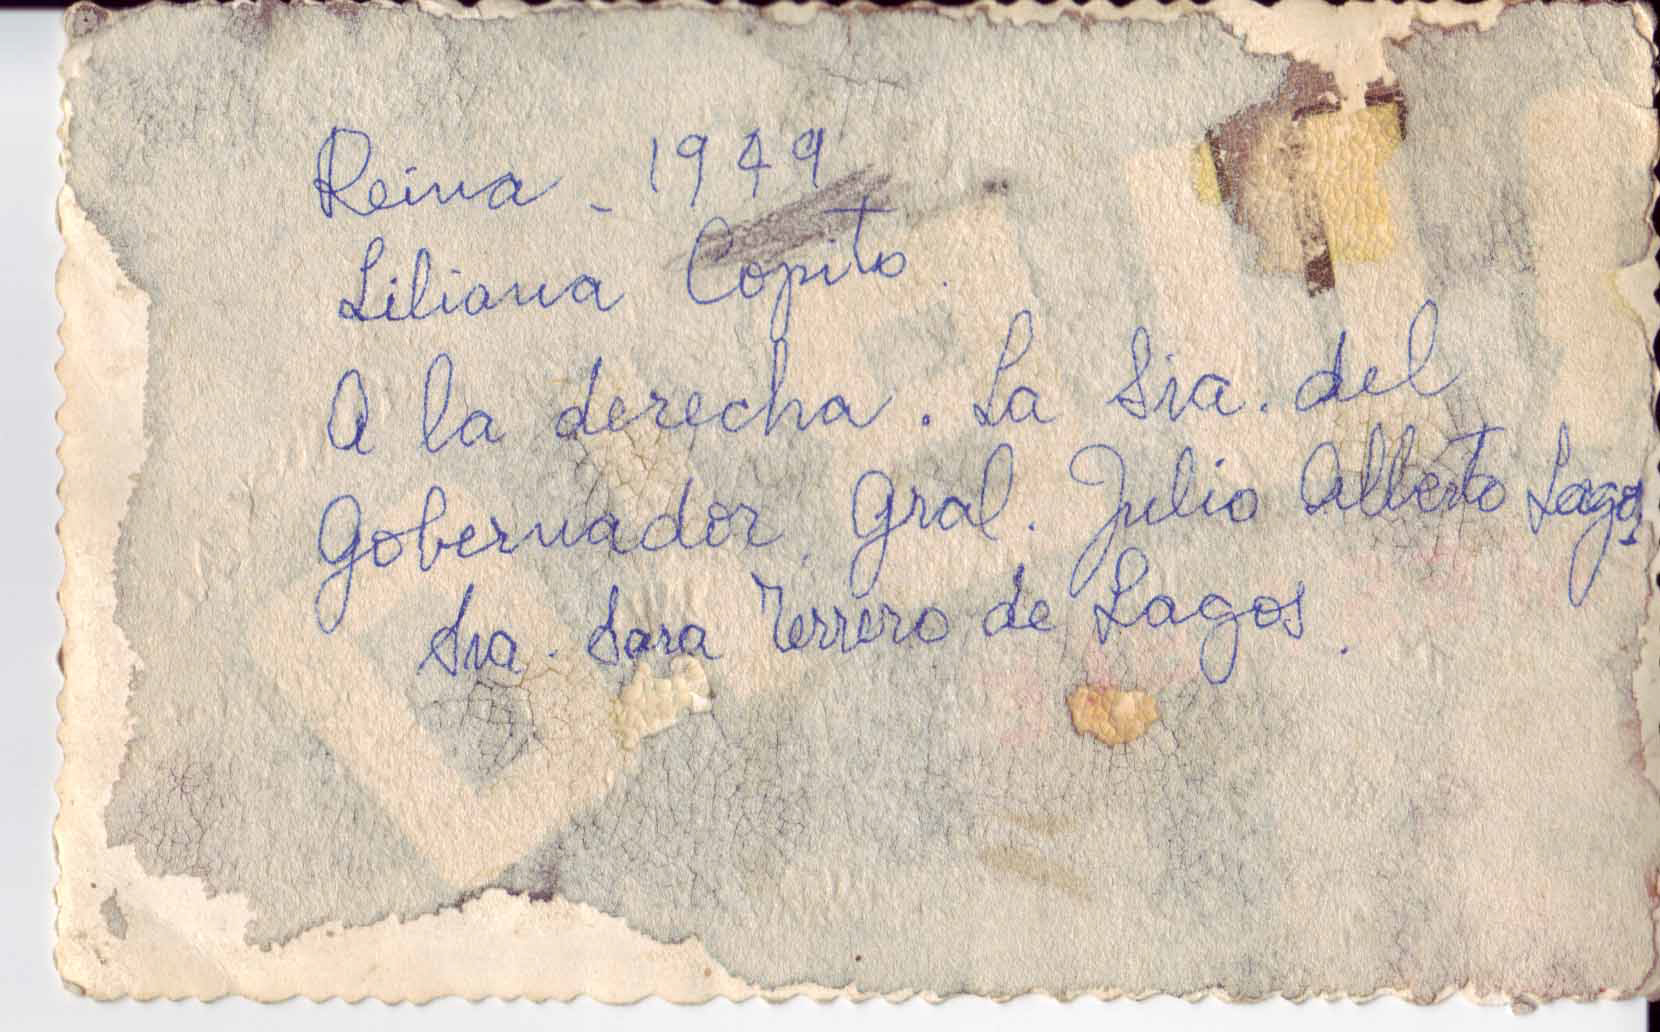 Reina - 1949
Liliana Copito.
A la derecha. La Sra. del
Gobernador, Gral. Julio Alberto Lagos
Sra. Sara Terrero de Lagos.